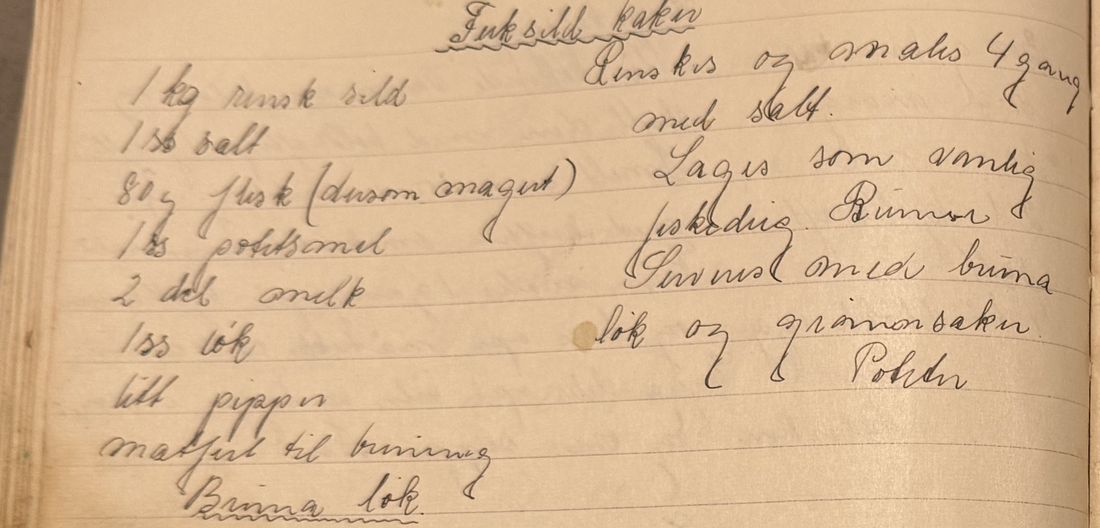 Fersksild kaker
1 kg rensk sild
1 ss salt
80 g flesk (dersom magert)
1 ss potetsmel
2 del melk
1 ss løk
litt pepper
matfett til bruning
Bruna løk.
Renskes og males 4 gang
med salt.
Lages som vanlig
fiskedeig. Brunes
Serverest med bruna
løk og grønnsaker.
Poteter